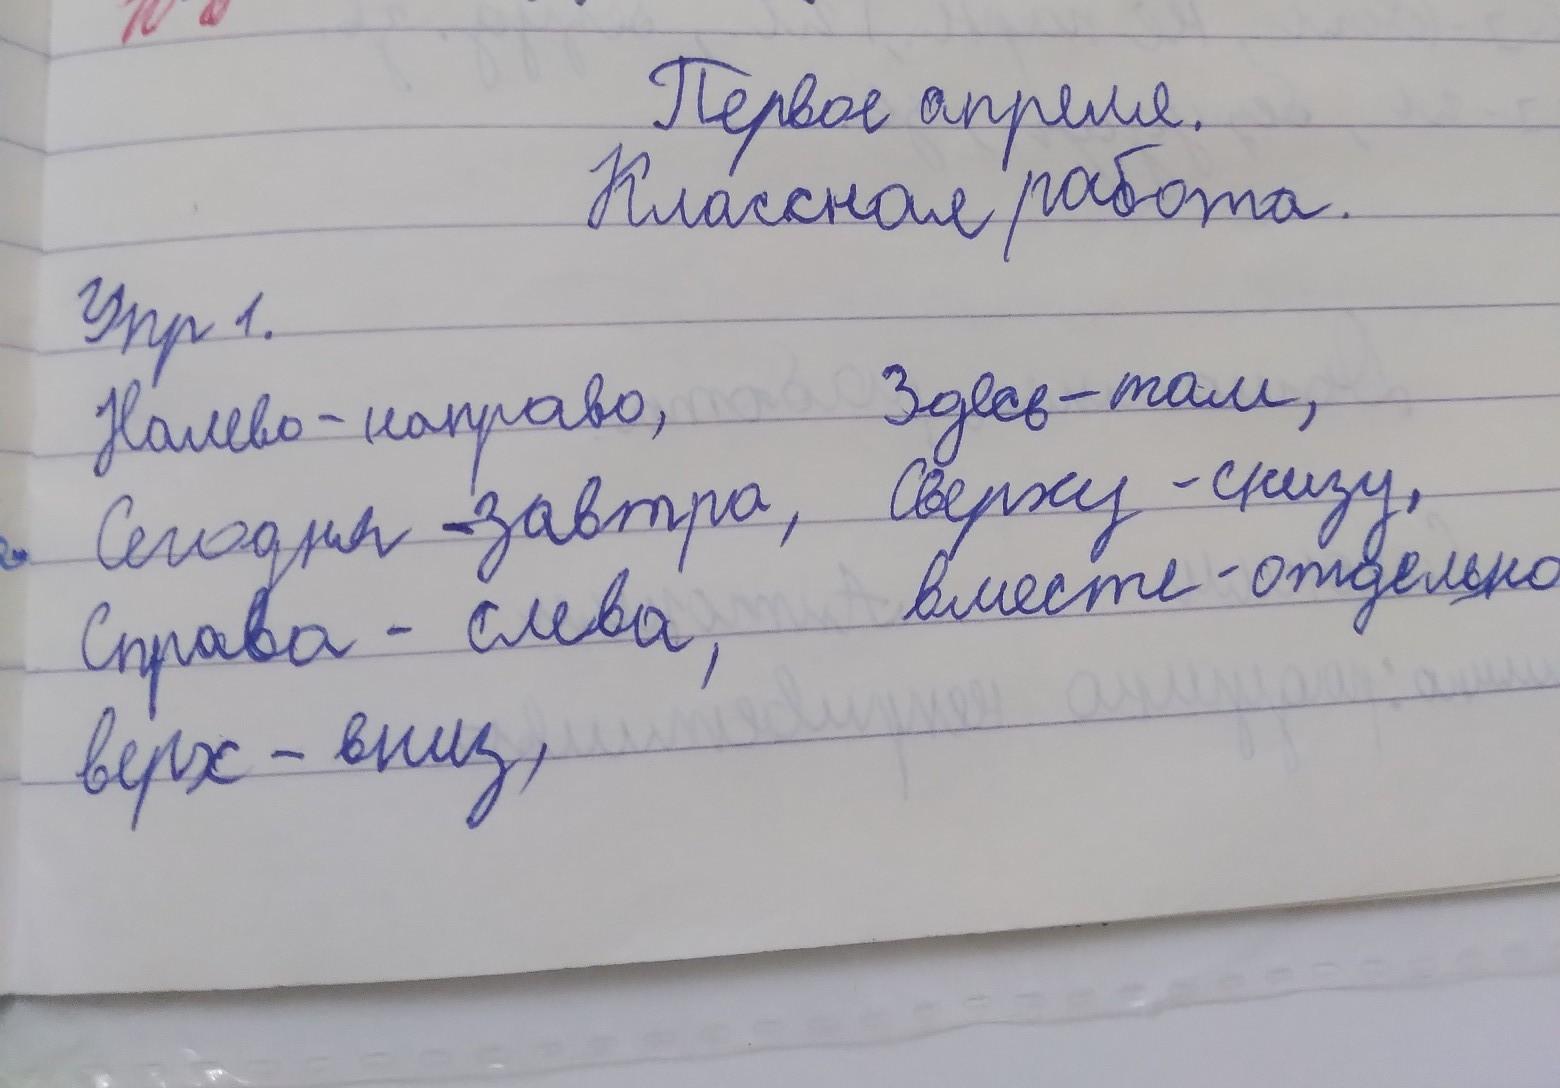 Первое апреля.
Классная работа.
Упр 1.
Налево - направо, Здесь - там,
Сегодня - завтра, Сверху - снизу,
Справа - слева, вместе - отдельно
верх - вниз,